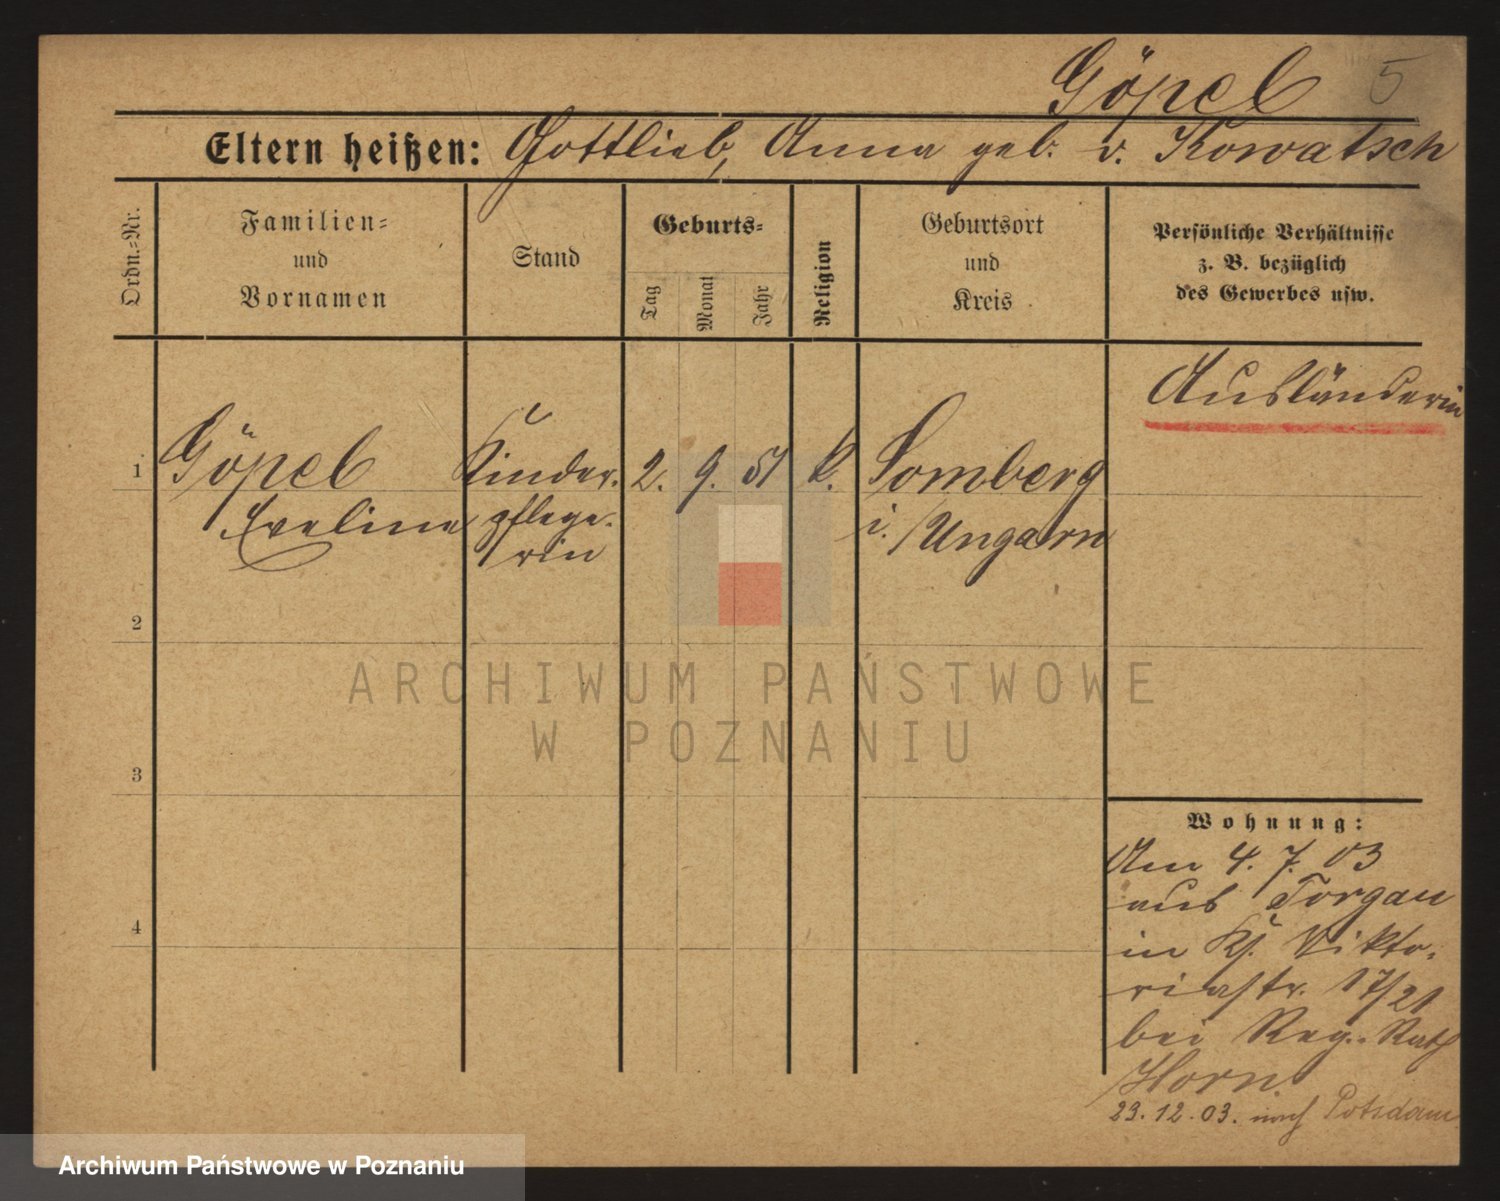 Göpel 5
Eltern heißen: Gottlieb, Anna geb. v. Kowatsch
Ordn.=Nr.
Familien=
und
Vornamen
Stand
Geburts=
Tag
Monat
Jahr
Religion
Geburtsort
und
Kreis
Persönliche Verhältnisse
z. B. bezüglich
des Gewerbes usw.
Ausländerin
1 Göpel Kinder- 2. 9. 51 k. Somberg
Eveline pflege- i. Ungarn
rin
2
ARCHIWUM PAŃSTWOWE
W POZNANIU
3
Wohnung:
Am 4. 7. 03
aus Torgau
4
in Vikto-
riastr. 17/21
bei Reg.-Rath
Horn.
23.12.03. nach Potsdam
Archiwum Państwowe w Poznaniu